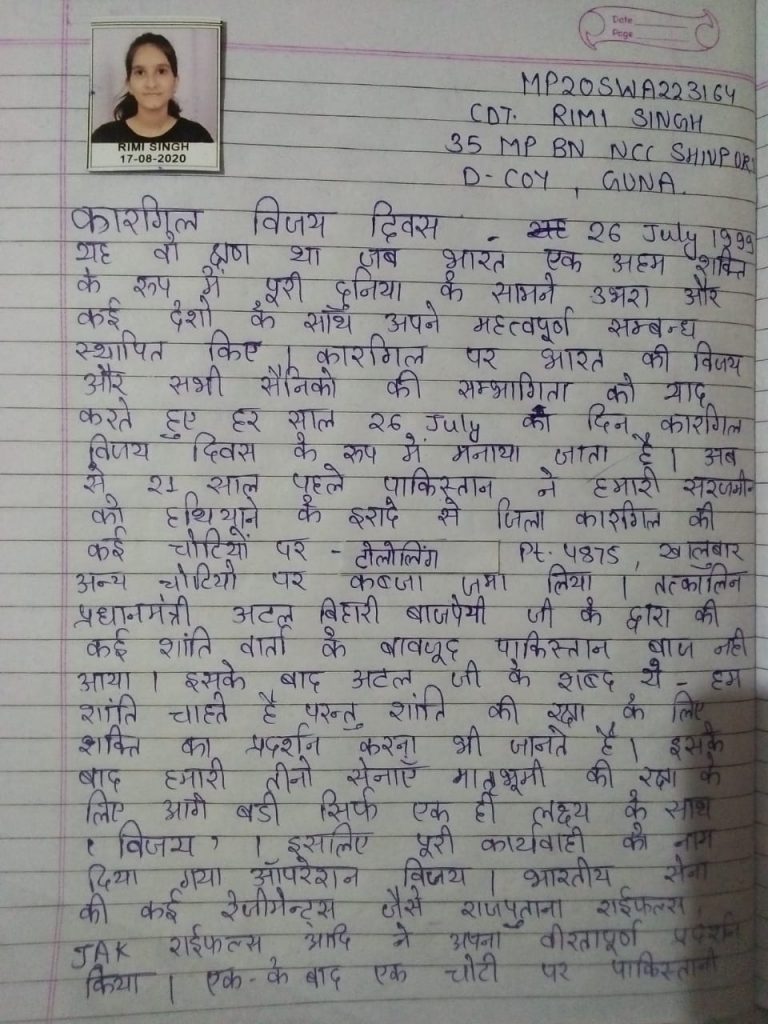 Date
Page
RIMI SINGH
17-08-2020
MP20SWA223164
CDT. RIMI SINGH
35 MP BN NCC SHIVPURI
D-COY, GUNA.
कारगिल विजय दिवस - 26 July 1999
यह वो क्षण था जब भारत एक अहम शक्ति
के रूप में पूरी दुनिया के सामने उभरा और
कई देशो के साथ अपने महत्वपूर्ण सम्बन्ध
स्थापित किए। कारगिल पर भारत की विजय
और सभी सैनिको की सम्भागिता को याद
करते हुए हर साल 26 July का दिन कारगिल
विजय दिवस के रूप में मनाया जाता है। अब
से 21 साल पहले पाकिस्तान ने हमारी सरजमीन
को हथियाने के इरादे से जिला कारगिल की
कई चोटियों पर - टोलोलिंग Pt. 4875, खालुबार
अन्य चोटियो पर कबजा जमा लिया। तत्कालिन
प्रधानमंत्री अटल बिहारी बाजपेयी जी के द्वारा की
कई शांति वार्ता के बावजूद पाकिस्तान बाज नही
आया। इसके बाद अटल जी के शब्द थे - हम
शांति चाहते है परन्तु शांति की रक्षा के लिए
शक्ति का प्रदर्शन करना भी जानते है। इसके
बाद हमारी तीनो सेनाएँ मातृभूमी की रक्षा के
लिए आगे बडी सिर्फ एक ही लक्ष्य के साथ
'विजय'। इसलिए पूरी कार्यवाही को नाम
दिया गया ऑपरेशन विजय। भारतीय सेना
की कई रेजीमेन्ट्स जैसे राजपुताना राईफल्स,
JAK राईफल्स आदि ने अपना वीरतापूर्ण प्रदर्शन
किया। एक-के बाद एक चोटी पर पाकिस्तानी